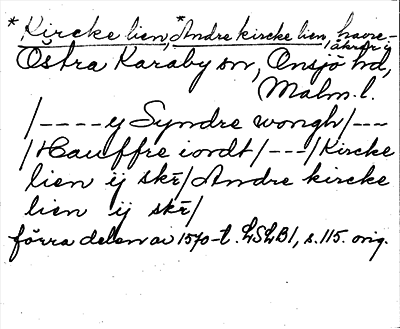 *Kircke lien, *Andre kircke lien, havre-
åkrar i
Östra Karaby sn, Onsjö hd,
Malm. l.
/----y Syndre wongh/---
/Hauffre iordt/---/Kircke
lien ij skr/Andre kircke
lien ij skr/
förra delen av 1570-t. LSLB1, s. 115. orig.